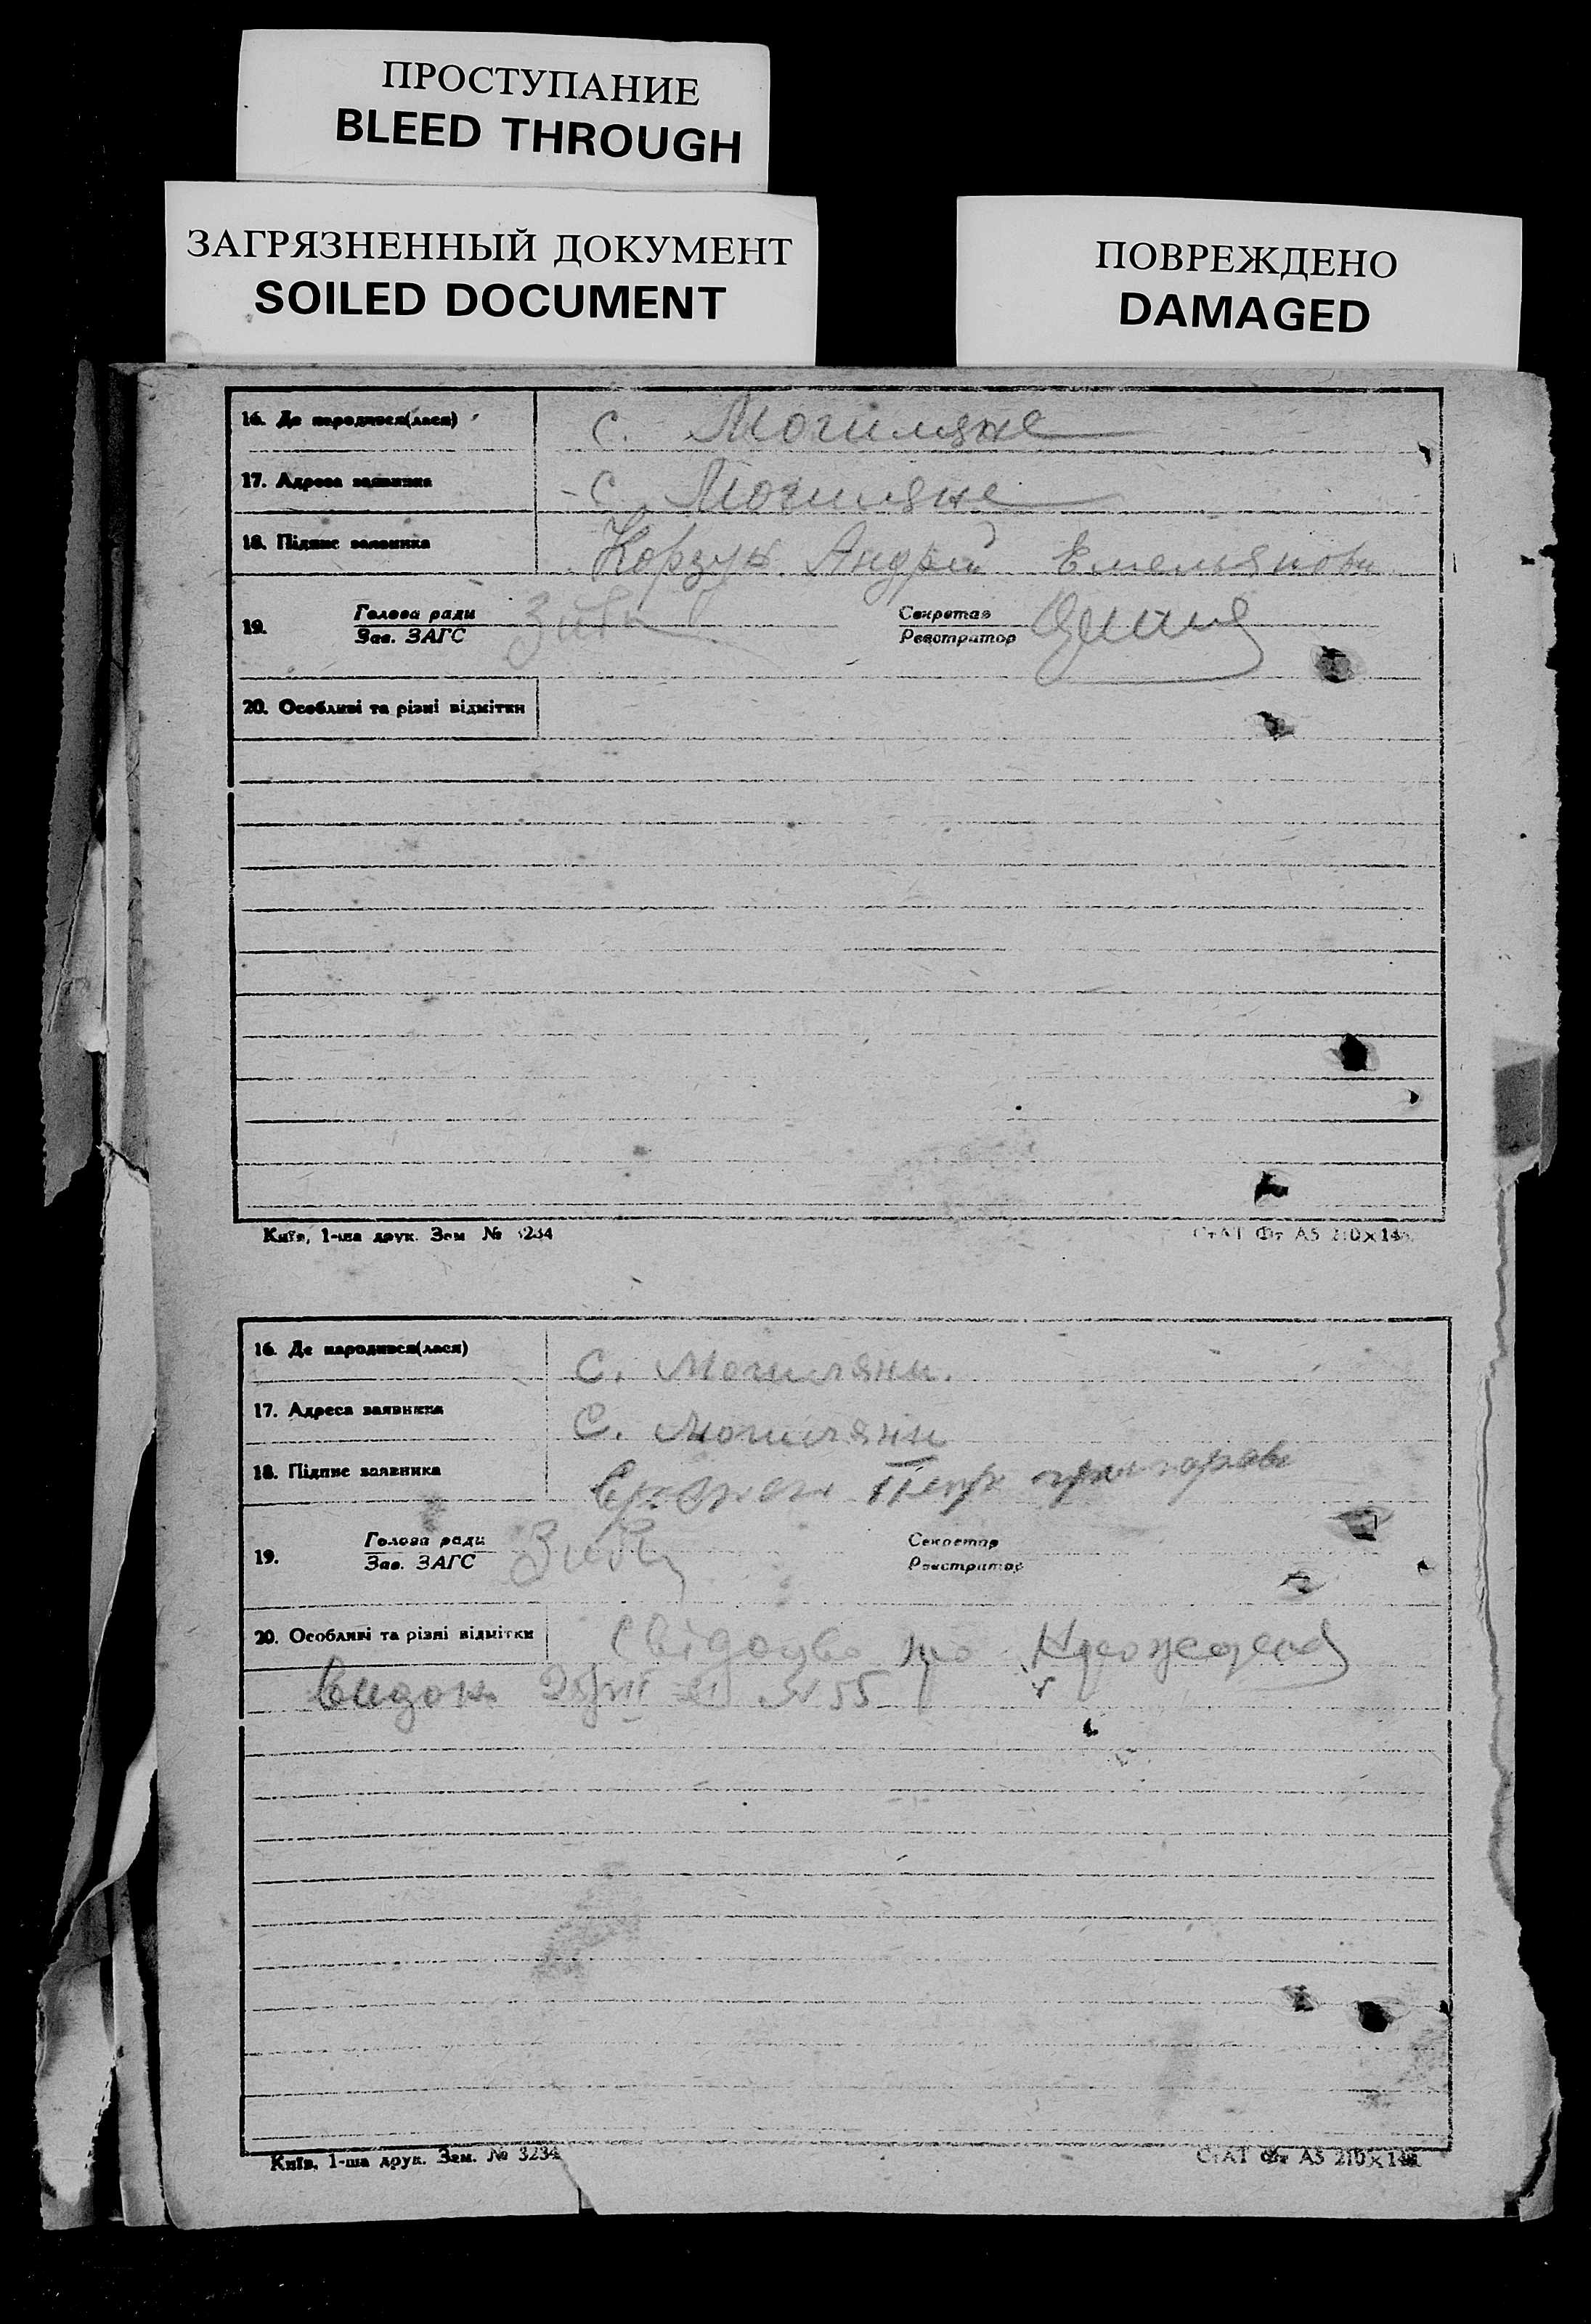 ПРОСТУПАНИЕ
BLEED THROUGH
ЗАГРЯЗНЕННЫЙ ДОКУМЕНТ
SOILED DOCUMENT
ПОВРЕЖДЕНО
DAMAGED
16. Де народився(лася) с. Могиляне
17. Адреса заявника с. Могиляне
18. Підпис заявника Корзун Андрей Емельянови
19. Голова ради
Зав. ЗАГС
Секретар
Реєстратор
20. Особливі та різні відмітки
Київ, 1-ша друк. Зам № 3234
СтАТ Фт А5 210×148
16. Де народився(лася) С. Могиляни.
17. Адреса заявника С. Могиляни
18. Підпис заявника Петр
19. Голова ради
Зав. ЗАГС
Секретар
Реєстратор
20. Особливі та різні відмітки Свідоцво про
видон № 55
Київ, 1-ша друк. Зам. № 3234
СтАТ Фт А5 210×148